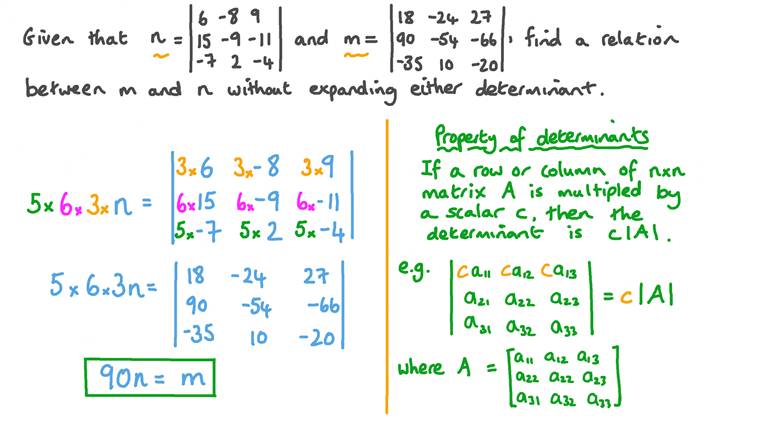 Given that n = | 6 -8 9 | and m = | 18 -24 27 | , find a relation
| 15 -9 -11 | | 90 -54 -66 |
| -7 2 -4 | | -35 10 -20 |
between m and n without expanding either determinant.
5 × 6 × 3 × n = | 3×6 3×-8 3×9 |
| 6×15 6×-9 6×-11 |
| 5×-7 5×2 5×-4 |
5 × 6 × 3n = | 18 -24 27 |
| 90 -54 -66 |
| -35 10 -20 |
90n = m
Property of determinants
If a row or column of n×n
matrix A is multipled by
a scalar c, then the
determinant is c|A|.
e.g. | ca₁₁ ca₁₂ ca₁₃ |
| a₂₁ a₂₂ a₂₃ | = c|A|
| a₃₁ a₃₂ a₃₃ |
where A = [ a₁₁ a₁₂ a₁₃ ]
[ a₂₂ a₂₂ a₂₃ ]
[ a₃₁ a₃₂ a₃₃ ]